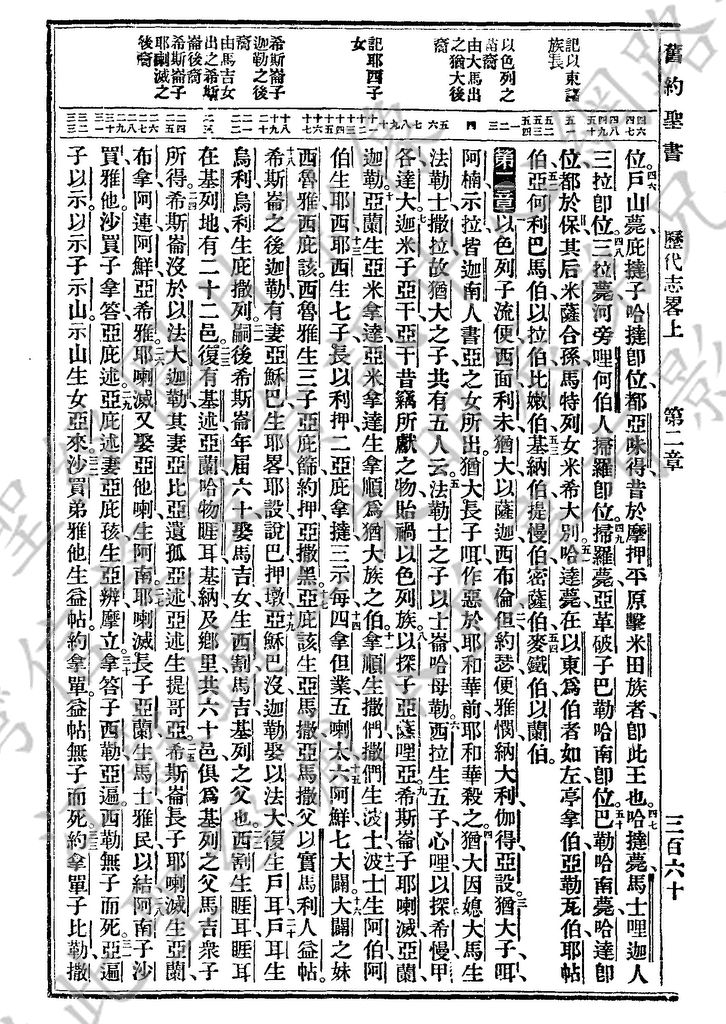 舊約聖書　歷代志畧上　第二章　三百六十
記以東諸族長
以色列之苗裔
由大馬出之猶大後裔
記耶西子女
希斯崙子迦勒之後裔
由馬吉女出之希斯崙後裔
希斯崙子耶喇滅之後裔
位戶山薨庇撻子哈撻卽位都亞味得昔於摩押平原擊米田族者卽此王也哈撻薨馬士哩迦人
三拉卽位三拉薨河旁哩何伯人掃羅卽位掃羅薨亞革破子巴勒哈南卽位巴勒哈南薨哈達卽
位都於保其后米薩合孫馬特列女米希大別哈達薨在以東爲伯者如左亭拿伯亞勒瓦伯耶帖
伯亞何利巴馬伯以拉伯比嫩伯基納伯提慢伯密薩伯麥鐵伯以蘭伯
第二章以色列子流便西面利未猶大以薩迦西布倫但約瑟便雅憫納大利伽得亞設猶大子咡
阿楠示拉皆迦南人書亞之女所出猶大長子咡作惡於耶和華前耶和華殺之猶大因媳大馬生
法勒士撒拉故猶大之子共有五人云法勒士之子以士崙哈母勒西拉生五子心哩以探希慢甲
各達大迦米子亞干亞干昔竊所獻之物貽禍以色列族以探子亞薩哩亞希斯崙子耶喇滅亞蘭
迦勒亞蘭生亞米拿達亞米拿達生拿順爲猶大族之伯拿順生撒們撒們生波士波士生阿伯阿
伯生耶西耶西生七子長以利押二亞庇拿撻三示每四拿但業五喇太六阿鮮七大闢大闢之妹
西魯雅亞庇該西魯雅生三子亞庇篩約押亞撒黑亞庇該生亞馬撒亞馬撒父以實馬利人益帖
希斯崙之後迦勒有妻亞穌巴生耶畧耶設說巴押墩亞穌巴沒迦勒娶以法大復生戶耳戶耳生
烏利烏利生庇撒列嗣後希斯崙年屆六十娶馬吉女生西割馬吉基列之父也西割生睚耳睚耳
在基列地有二十二邑復有基述亞蘭哈物睚耳基納及鄉里共六十邑俱爲基列之父馬吉衆子
所得希斯崙沒於以法大迦勒其妻亞比亞遺孤亞述亞述生提哥亞希斯崙長子耶喇滅生亞蘭
布拿阿連阿鮮亞希雅耶喇滅又娶亞他喇生阿南耶喇滅長子亞蘭生馬士雅民以結阿南子沙
買雅他沙買子拿答亞庇述亞庇述妻亞庇孩生亞辨摩立拿答子西勒亞遍西勒無子而死亞遍
子以示以示子示山示山生女亞來沙買弟雅他生益帖約拿單益帖無子而死約拿單子比勒撒